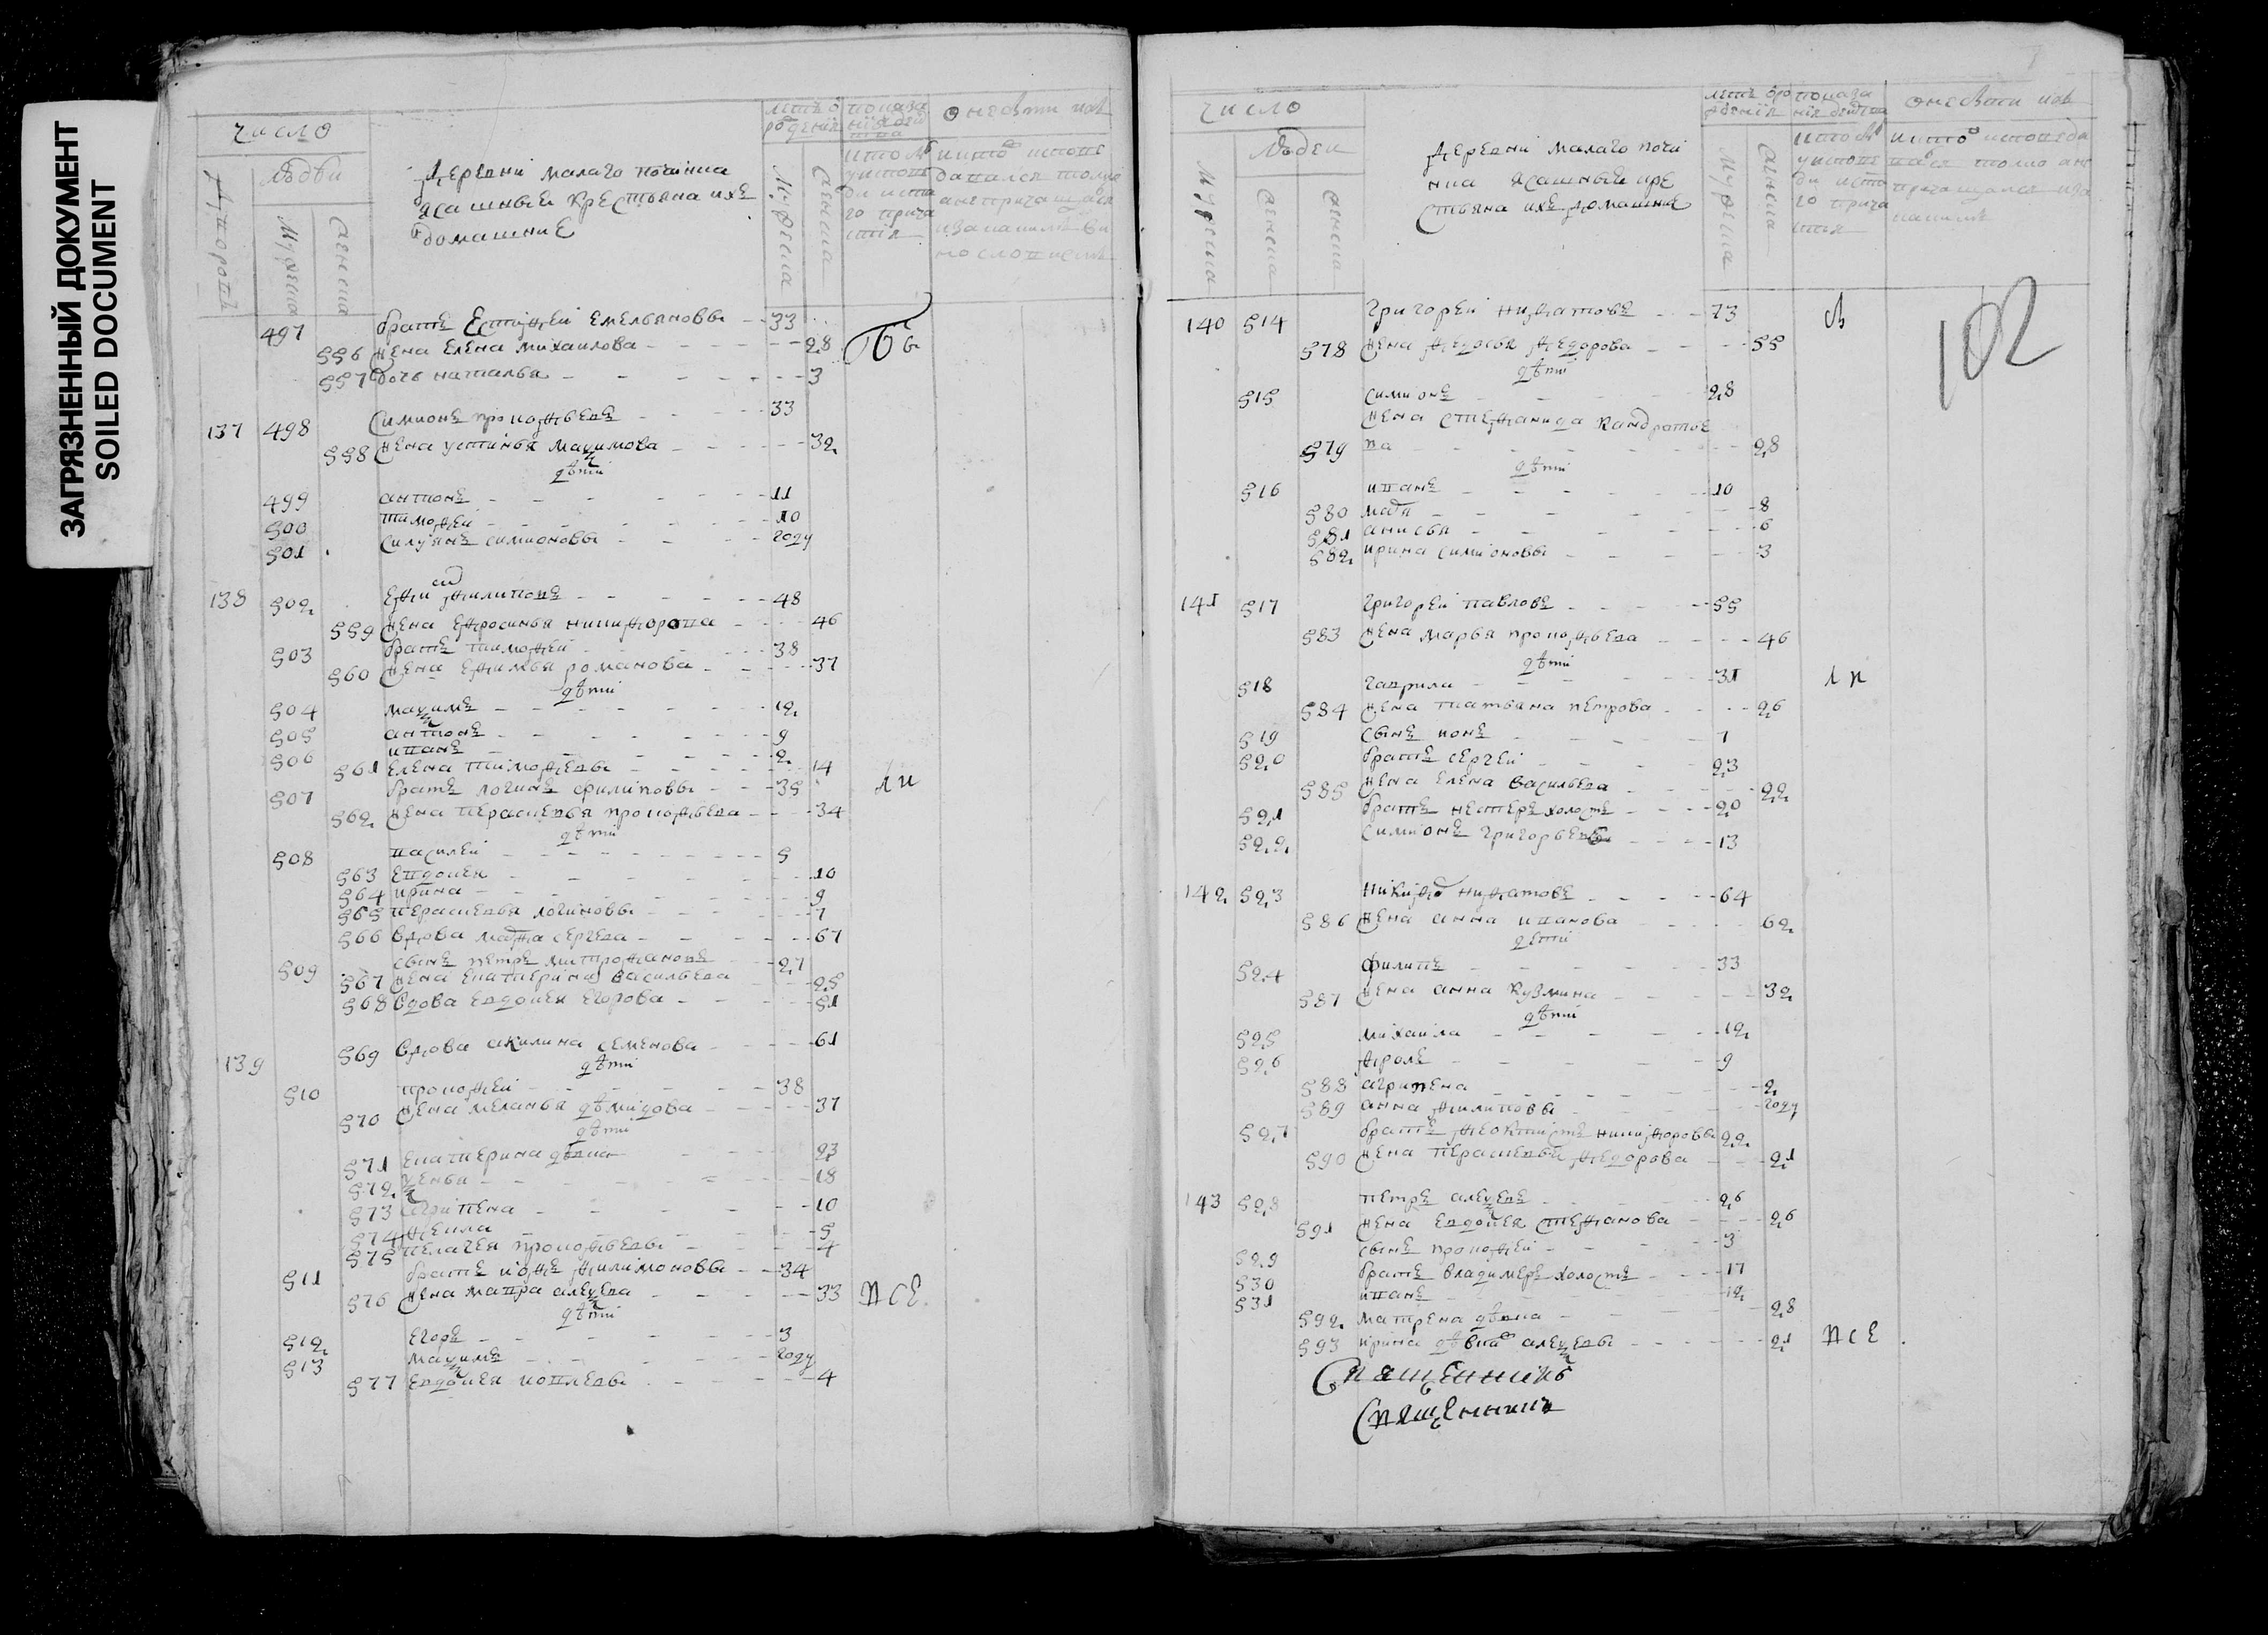 ЗАГРЯЗНЕННЫЙ ДОКУМЕНТ
SOILED DOCUMENT
число
людеи
дворовъ
мужеска
женска
деревни малаго починка
ясашныи крестьяна ихъ
домашние
летъ о рождения
мужеска
женска
показания действа
кто былъ у исповеди и святаго причастия
онебытии ихъ
497 братъ Естифеи Емельяновы 33
556 жена Елена михаилова 28
557 дочь наталья 3
137 498 Симионъ прокофьевъ 33
558 жена устинья маξимова 32
дѣти
499 антонъ 11
500 тимофеи 10
501 силуянъ симионовы году
138 502 филиповъ 48
559 жена ефросинья никифорова 46
503 братъ тимофеи 38
560 жена ефимья романова 37
дѣти
504 маξимъ 12
505 антонъ 9
506 иванъ 2
561 елена тимофеевы 14
507 братъ логинъ филиповы 35
562 жена парасковья прокофьева 34
дѣти
508 василеи 5
563 евдокея 10
564 ирина 9
565 парасковья логиновы 7
566 вдова сергева 67
509 сынъ петръ митрофановъ 27
567 жена екатерина васильева 25
568 вдова евдокея егорова 51
139 569 вдова акилина семенова 61
дѣти
510 прокофеи 38
570 жена меланья дѣмидова 37
дѣти
571 екатерина дѣвка 23
572 ξенья 18
573 агрипена 10
574 фекла 5
575 пелагея прокофьевы 4
511 братъ филимоновы 34
576 жена мавра алеξева 33 все
дѣти
512 егоръ 3
513 маξимъ году
577 евдокея 4
число
людеи
мужеска
женска
женска
деревни малаго почи
нка ясашныи кре
стьяна ихъ домашние
летъ от рождения
мужеска
женска
показания действа
онебытии ихъ
102
140 514 григореи нифатовъ 73
578 жена федосья федорова 55
дѣти
515 симионъ 28
жена стефанида кандратье
579 ва 28
дѣти
516 иванъ 10
580 8
581 анисья 6
582 ирина симионовы 3
141 517 григореи павловъ 55
583 жена марья прокофьева 46
дѣти
518 гаврила 31
584 жена татьяна петрова 26
519 сынъ ионъ 7
520 братъ сергеи 23
585 жена елена васильева 22
521 братъ нестеръ холостъ 20
522 симионъ григорьевы 13
142 523 никифоръ нифатовъ 64
586 жена анна иванова 62
дети
524 филипъ 33
587 жена анна кузмина 32
дѣти
525 михаила 12
526 фролъ 9
588 агрипена 2
589 анна филиповы году
527 братъ феоктистъ никифоровы 22
590 жена парасковья федорова 21
143 528 петръ алеξевъ 26
591 жена евдокея стефанова 26
529 сынъ прокофеи 3
530 братъ владимеръ холостъ 17
531 иванъ 12
592 матрена дѣвка 28
593 ирина дѣвка алеξевы 21 все
Священникъ
Священникъ